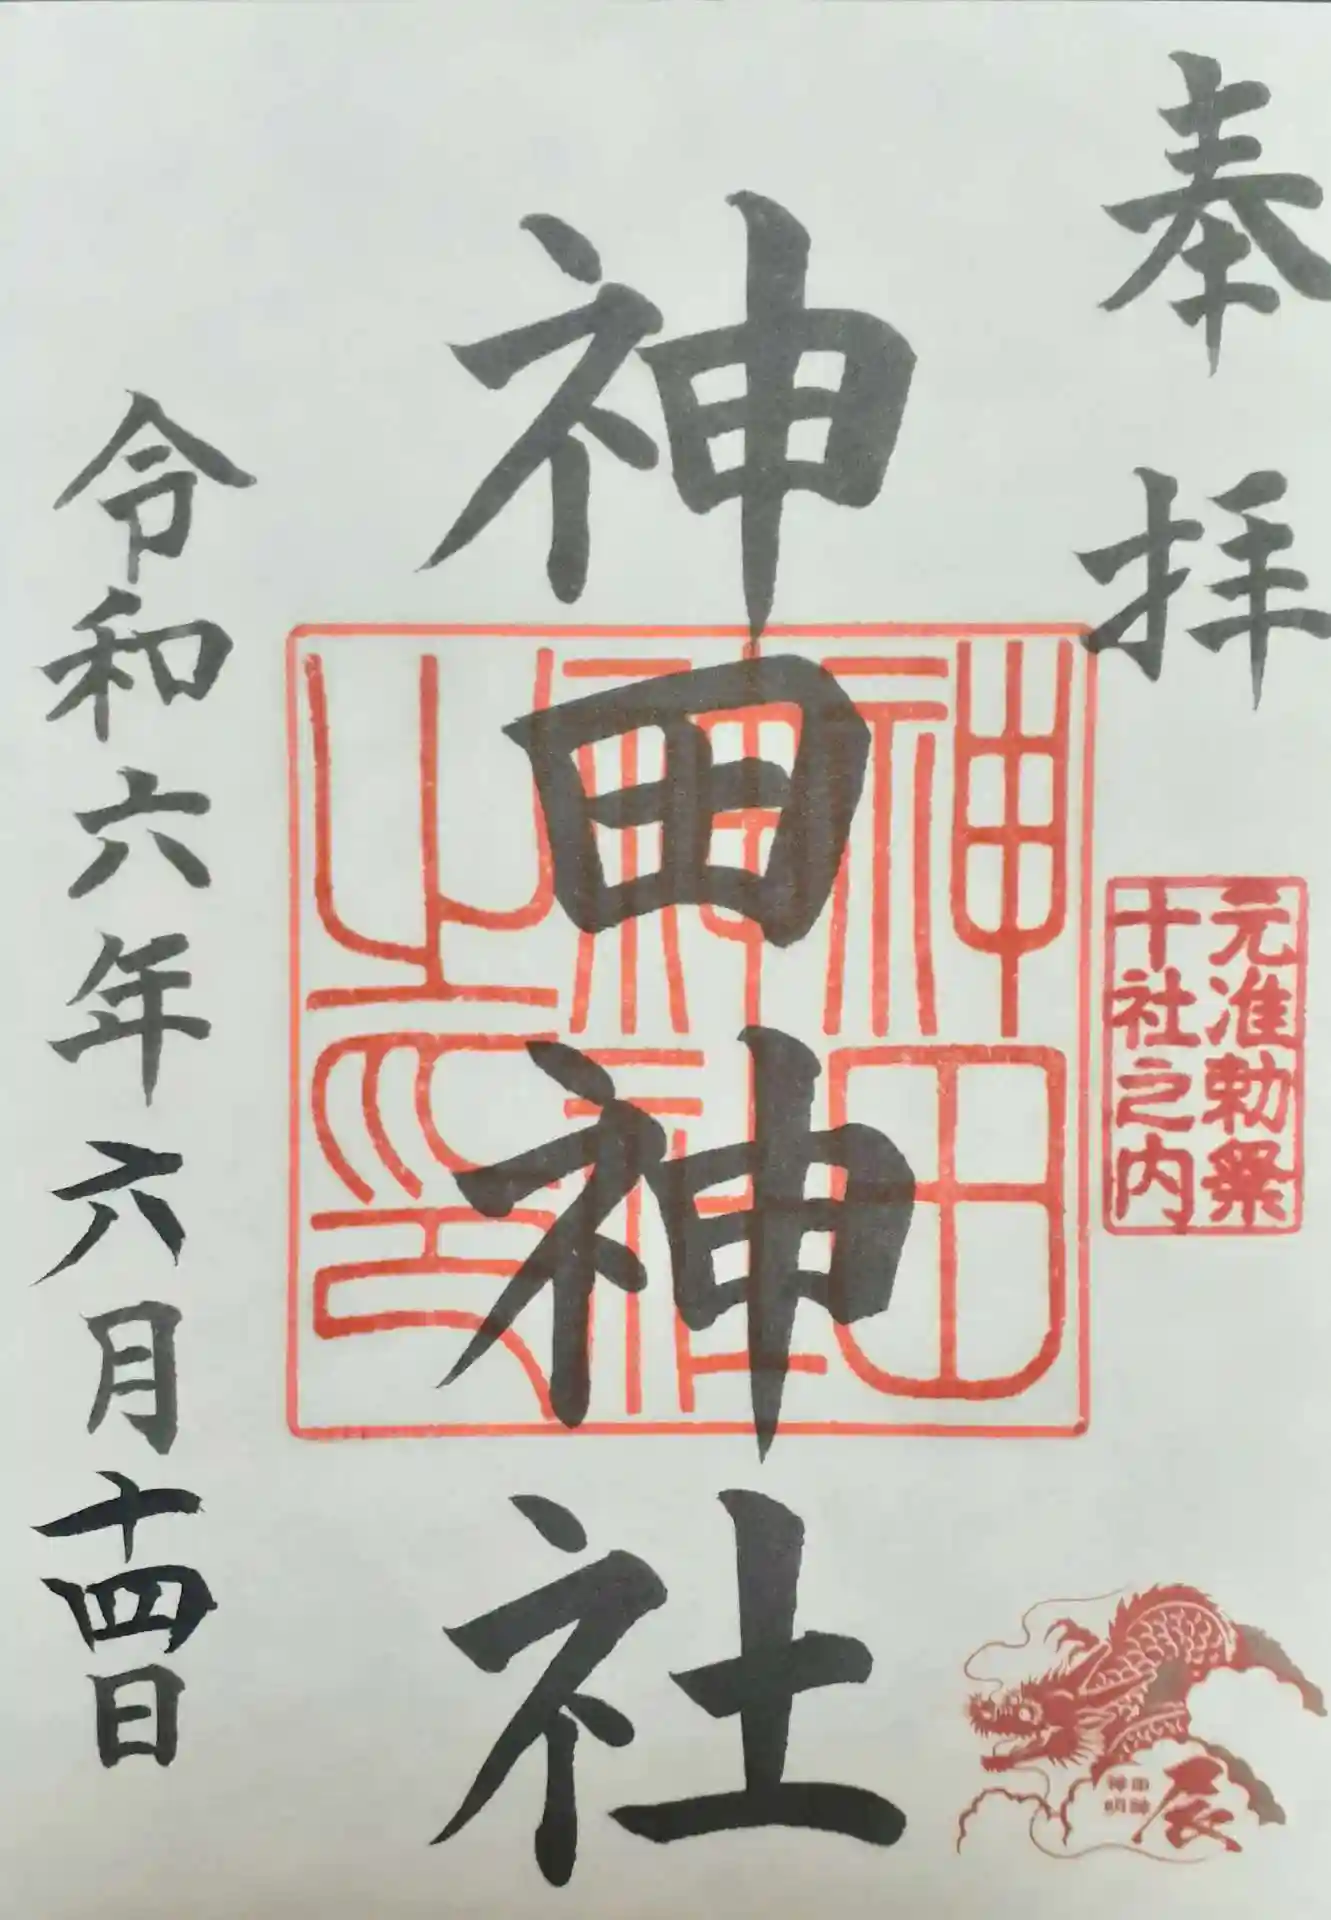 奉拝
元准勅祭
十社之内
神田神社
神田
神社
之印
令和六年六月十四日
辰